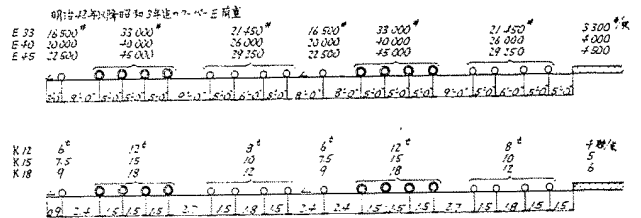 明治42年以降昭和3年迄のクーパー氏荷重
E 33 16 500# 33 000# 21 450# 16 500# 33 000# 21 450# 3 300#/呎
E 40 20 000 40 000 26 000 20 000 40 000 26 000 4 000
E 45 22 500 45 000 29 250 22 500 45 000 29 250 4 500
8'-0" 5'-0" 5'-0" 5'-0" 9'-0" 5'-0" 6'-0" 5'-0" 8'-0" 8'-0" 5'-0" 5'-0" 5'-0" 9'-0" 5'-0" 6'-0" 5'-0" 5'-0"
K 12 6t 12t 8t 6t 12t 8t 4
K 15 7.5 15 10 7.5 15 10 5
K 18 9 18 12 9 18 12 6
0.9 2.4 1.5 1.5 1.5 2.7 1.5 1.8 1.5 2.4 2.4 1.5 1.5 1.5 2.7 1.5 1.8 1.5 1.5